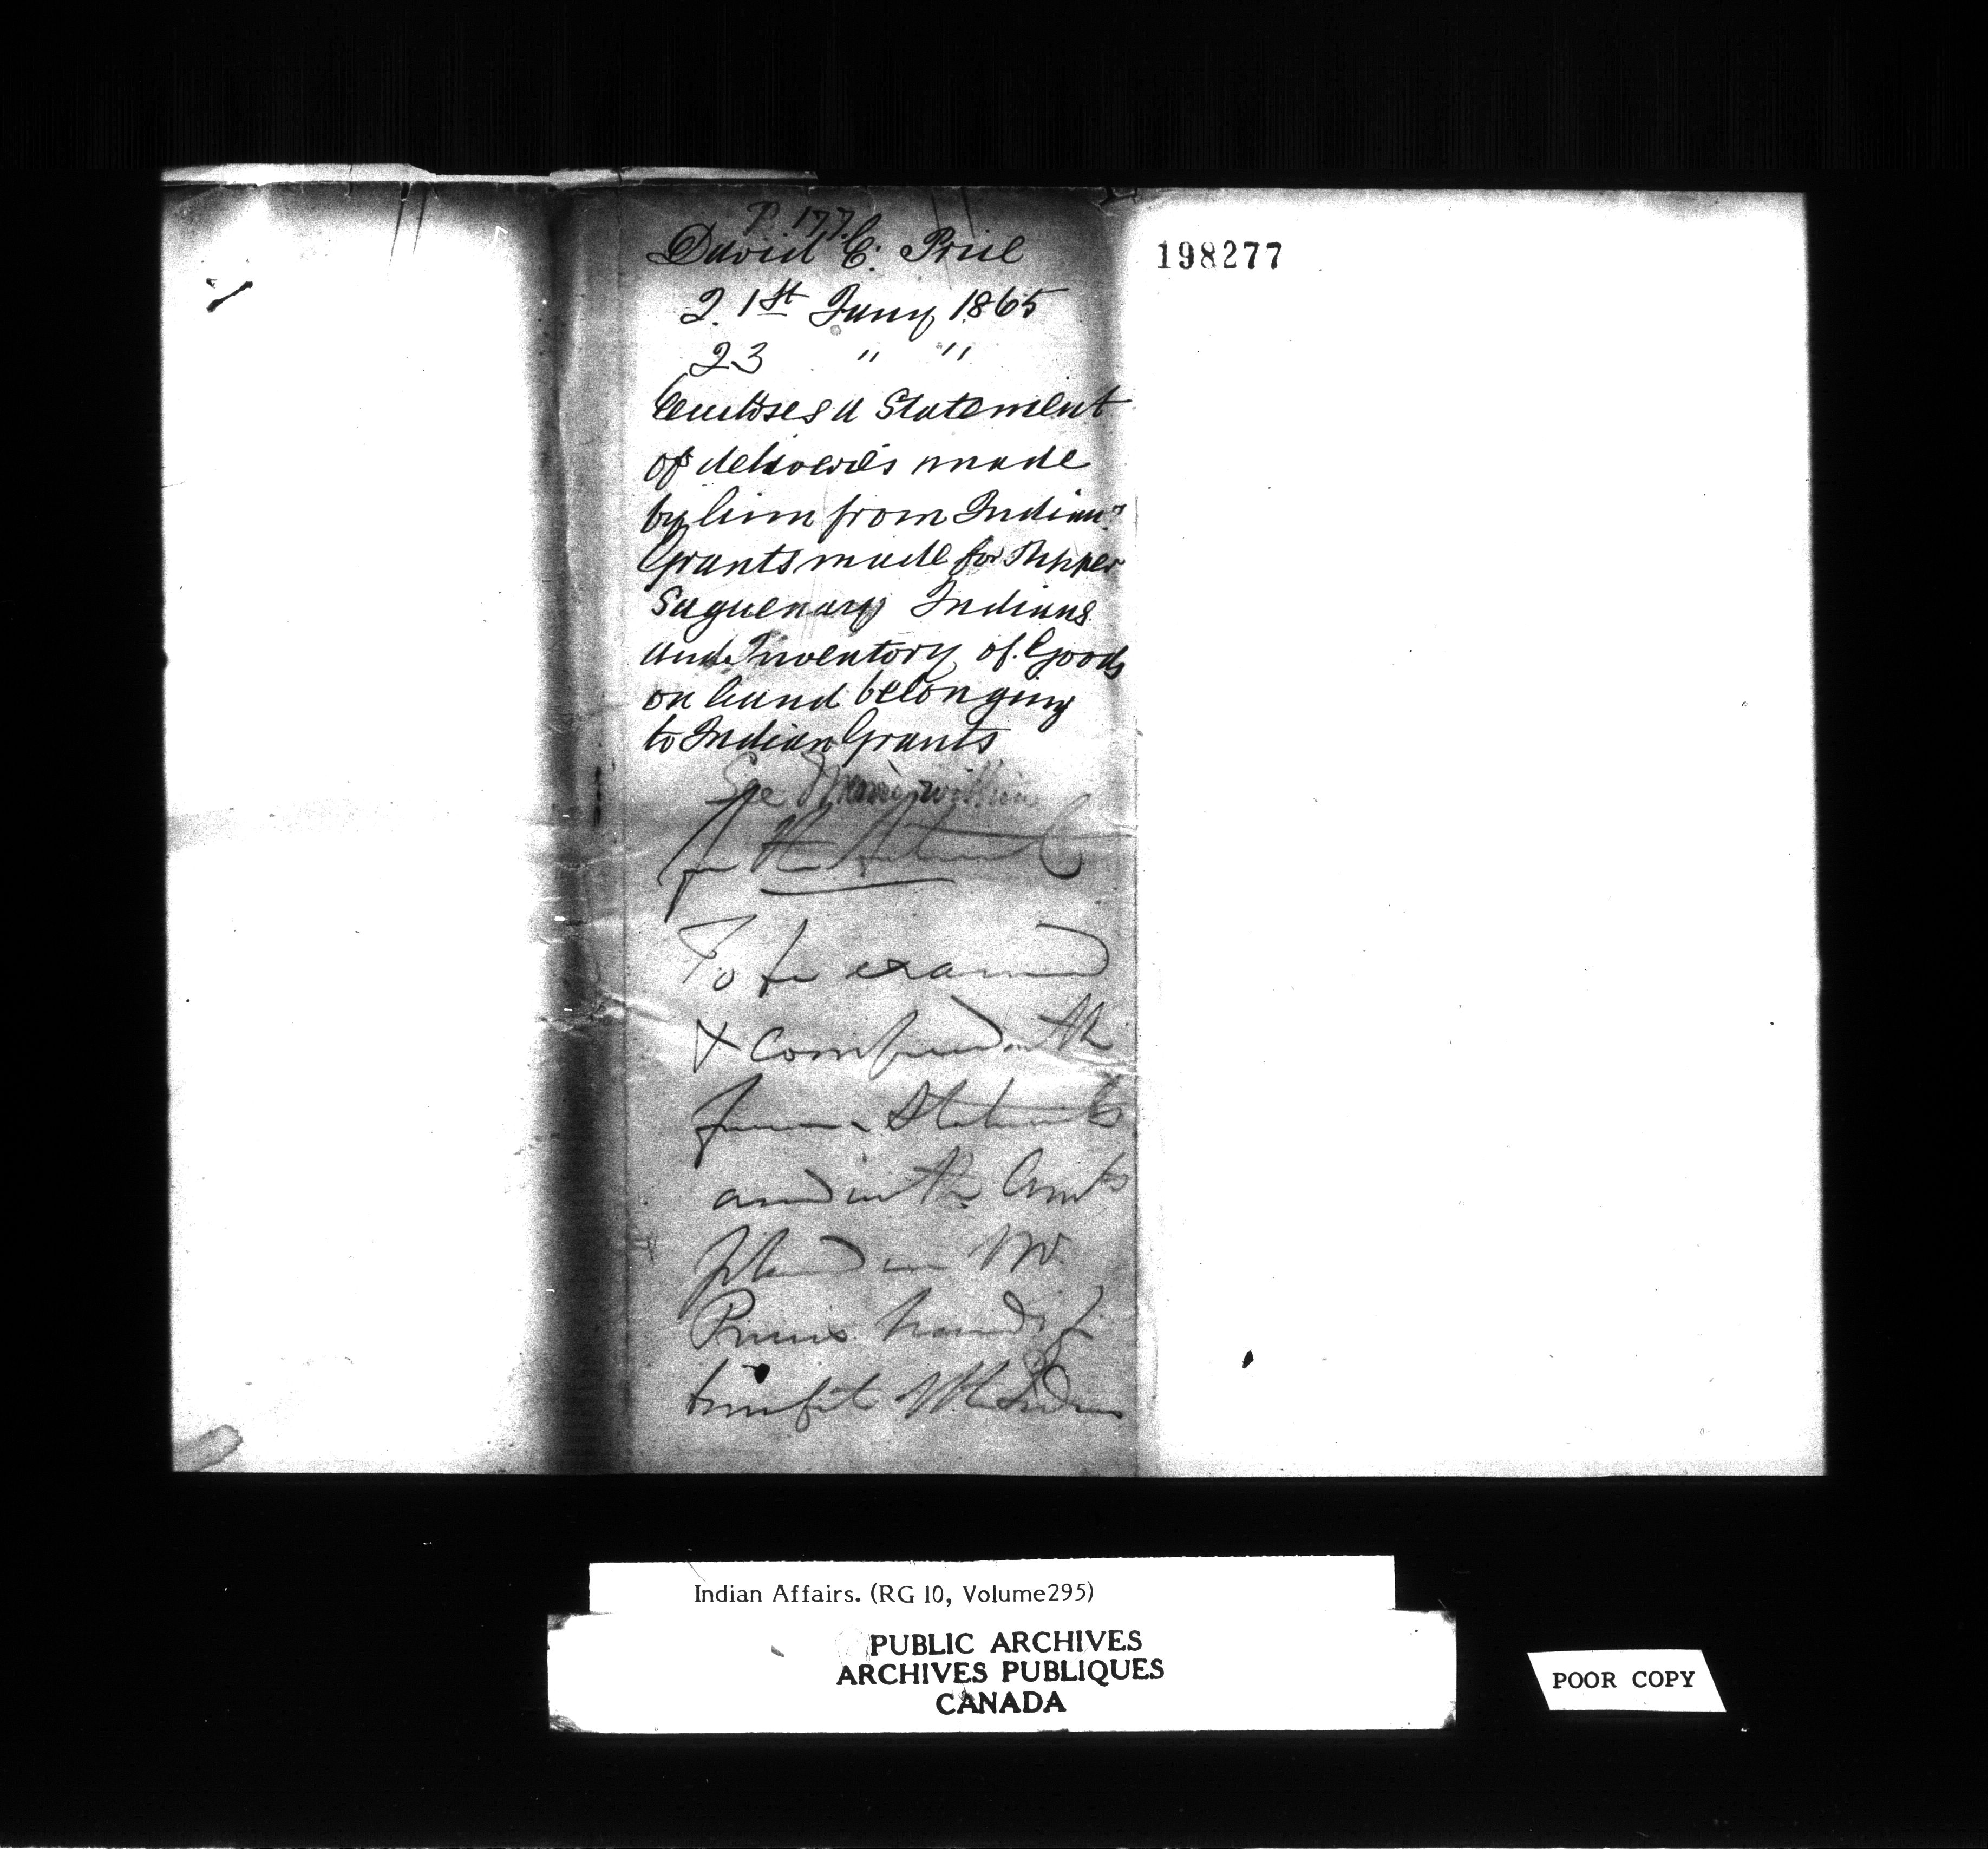 P. 177.
David E. Price
2. 1st Jany 1865
23 " "
Encloses a Statement
of deliveries made
by him from Indian
Grants made for Upper
Saguenay Indians
and Inventory of Goods
on hand belonging
to Indian Grants
See Memo within
for the
To be examined
& compared with
former Statements
and with the Amts
placed in Mr.
Prices hands for
benefit of the Indians
198277
Indian Affairs. (RG 10, Volume295)
PUBLIC ARCHIVES
ARCHIVES PUBLIQUES
CANADA
POOR COPY